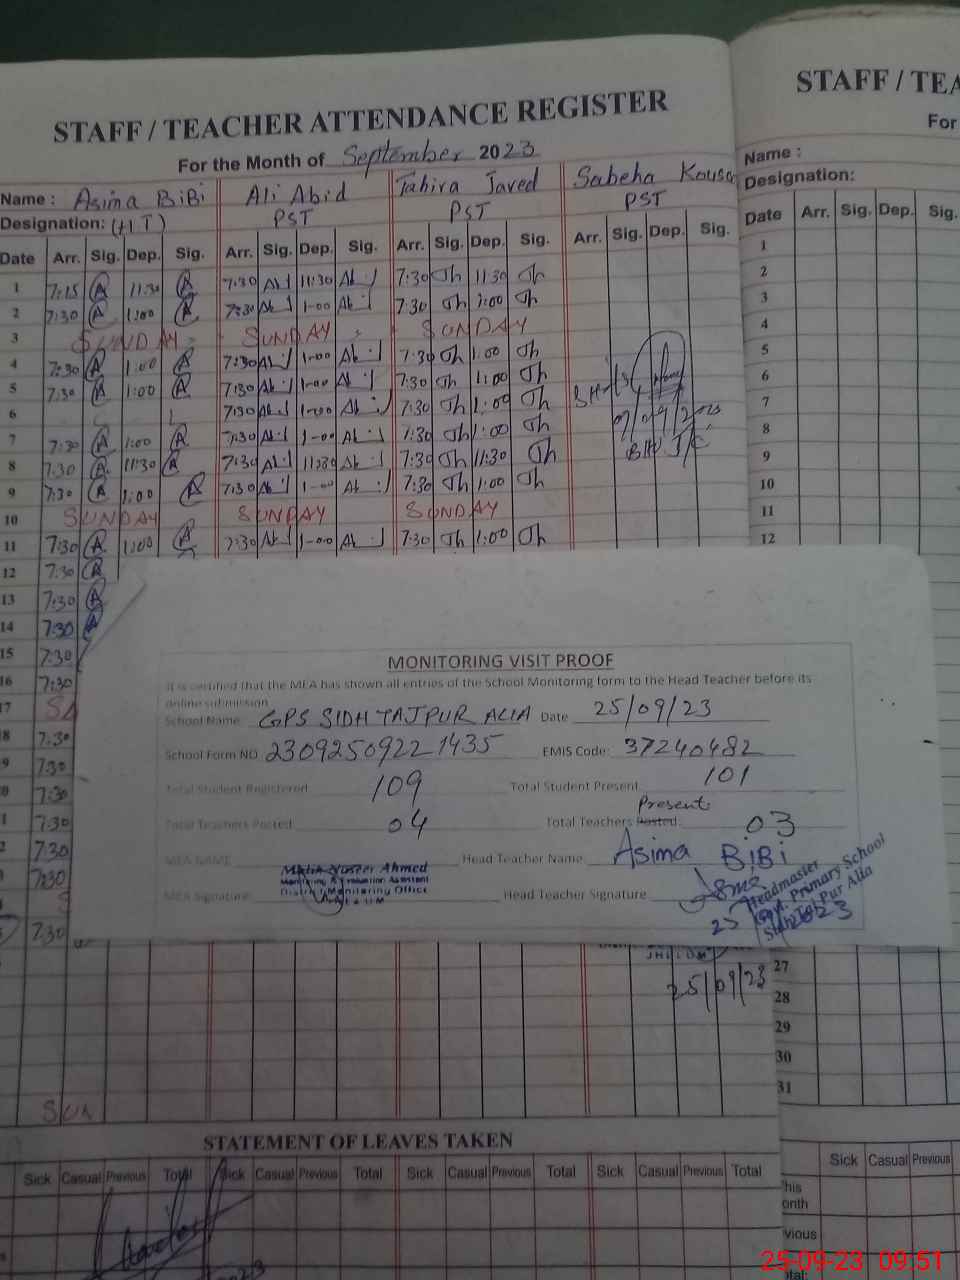 STAFF / TEACHER ATTENDANCE REGISTER
For the Month of September 2023
Name : Asima BiBi Ali Abid Tahira Javed Sabeha Kousa
Designation: (HT) PST PST PST
Date Arr. Sig. Dep. Sig. Arr. Sig. Dep. Sig. Arr. Sig. Dep. Sig. Arr. Sig. Dep. Sig.
1 7:15 A 11:30 A 7:30 Ab 11:30 Ab 7:30 Th 11 30 Th
2 7:30 A 1:00 A 7:30 Ab 1-00 Ab 7:30 Th 1:00 Th
3 SUNDAY SUNDAY SUNDAY
4 7:30 A 1:00 A 7:30 Ab 1-00 Ab 7:30 Th 1:00 Th
5 7:30 A 1:00 A 7:30 Ab 1-00 Ab 7:30 Th 1:00 Th
6 7:30 Ab 1-00 Ab 7:30 Th 1:00 Th
7 7:30 A 1:00 A 7:30 Ab 1-00 Ab 7:30 Th 1:00 Th
8 7:30 A 11:30 A 7:30 Ab 11:30 Ab 7:30 Th 11:30 Th
9 7:30 A 1:00 A 7:30 Ab 1-00 Ab 7:30 Th 1:00 Th
10 SUNDAY SUNDAY SUNDAY
11 7:30 A 1:00 A 7:30 Ab 1-00 Ab 7:30 Th 1:00 Th
12 7:30 A
13 7:30 A
14 7:30 A
15 7:30
16 7:30
17 S
8 7:30
9 7:30
0 7:30
1 7:30
2 7:30
7:30
7:30
SUN
MONITORING VISIT PROOF
It is certified that the MEA has shown all entries of the School Monitoring form to the Head Teacher before its
online submission
School Name GPS SIDH TAJPUR ALIA Date 25/09/23
School Form NO 23092509221435 EMIS Code: 37240482
Total Student Registered 109 Total Student Present 101
Present
Total Teachers Posted 04 Total Teachers Posted: 03
MEA NAME Malik Naseer Ahmed Head Teacher Name Asima BiBi
Monitoring & Evaluation Assistant
District Monitoring Office
MEA Signature JHELUM Head Teacher Signature
Headmaster
Govt. Primary School
Sidh Taj Pur Alia
25/09/23
STATEMENT OF LEAVES TAKEN
Sick Casual Previous Total Sick Casual Previous Total Sick Casual Previous Total Sick Casual Previous Total
STAFF / TEA
For
Name :
Designation:
Date Arr. Sig. Dep. Sig.
1
2
3
4
5
6
7
8
9
10
11
12
27
28
29
30
31
Sick Casual Previous
his
onth
vious
otal:
25-09-23 09:51